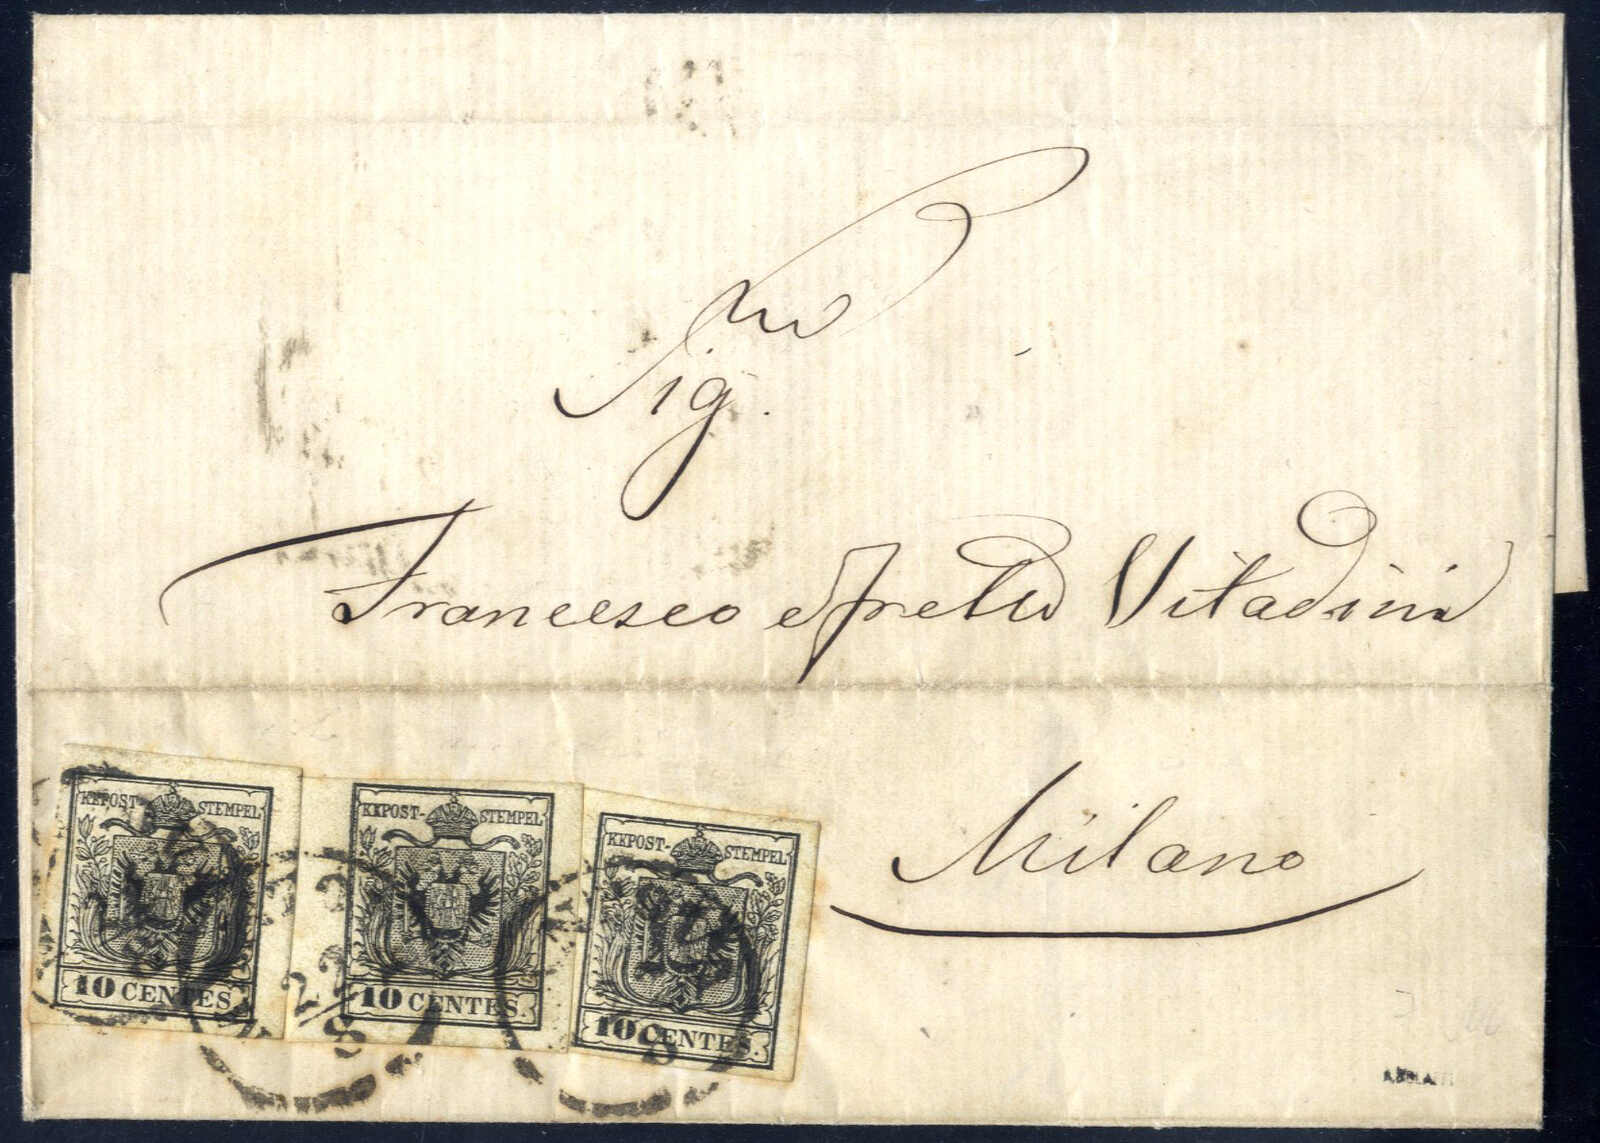 Sig.ri
Francesco e fratelli Vitadini
Milano
KKPOST-STEMPEL
10 CENTES.
KKPOST-STEMPEL
10 CENTES.
KKPOST-STEMPEL
10 CENTES.
22
8